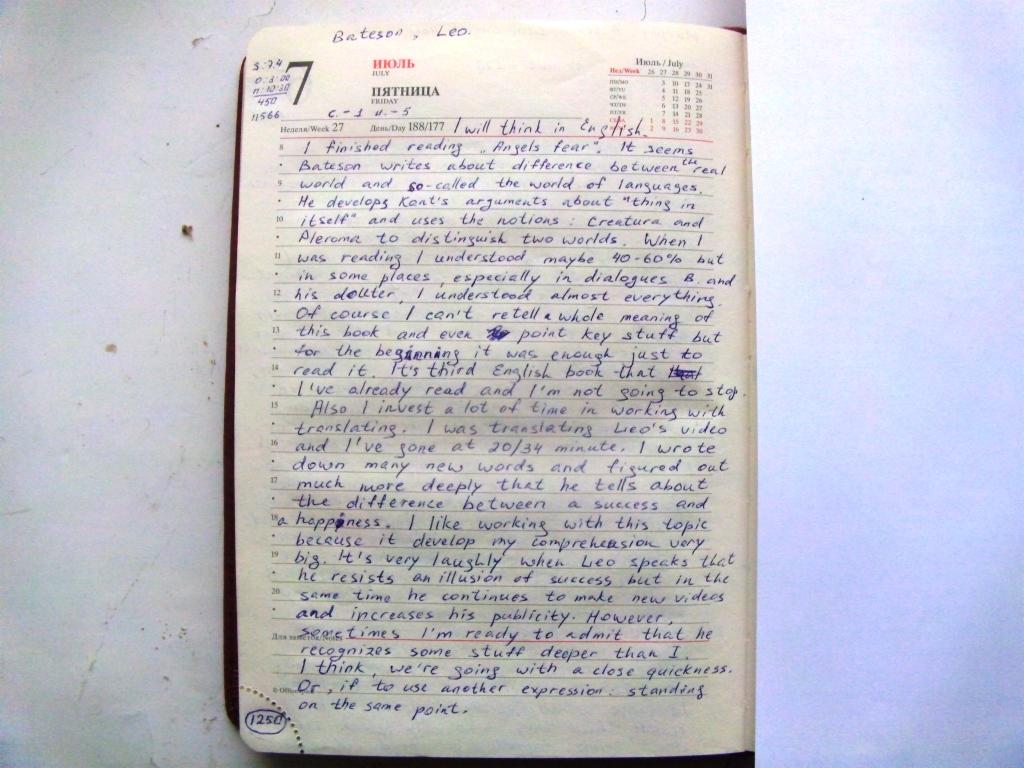 Bateson, Leo.
s: 7.4
0:3:00
n: 10:30
450
11566
7
ИЮЛЬ
JULY
ПЯТНИЦА
FRIDAY
c. - 1 u. - 5
Июль / July
Нед/Week 26 27 28 29 30 31
ПН/MO 3 10 17 24 31
ВТ/TU 4 11 18 25
СР/WE 5 12 19 26
ЧТ/TH 6 13 20 27
ПТ/FR 7 14 21 28
СБ/SA 1 8 15 22 29
2 9 16 23 30
Неделя/Week 27 День/Day 188/177 I will think in English.
8 I finished reading „Angels fear". It seems
Bateson writes about difference between the real
9 world and so-called the world of languages.
He develops Kant's arguments about "thing in
10 itself" and uses the notions: Creatura and
Pleroma to distinguish two worlds. When I
11 was reading I understood maybe 40-60% but
in some places, especially in dialogues B. and
12 his doutter, I understood almost everything.
Of course I can't retell a whole meaning of
13 this book and even point key stuff but
for the beginning it was enough just to
14 read it. It's third English book that
I've already read and I'm not going to stop.
15 Also I invest a lot of time in working with
translating. I was translating Leo's video
16 and I've gone at 20/34 minute. I wrote
down many new words and figured out
17 much more deeply that he tells about
the difference between a success and
18 a happiness. I like working with this topic
because it develop my comprehension very
19 big. It's very laughly when Leo speaks that
he resists an illusion of success but in the
20 same time he continues to make new videos
and increases his publicity. However,
Для заметок/Notes sometimes I'm ready to admit that he
recognizes some stuff deeper than I.
I think, we're going with a close quickness.
© Office Or, if to use another expression: standing
on the same point.
1250